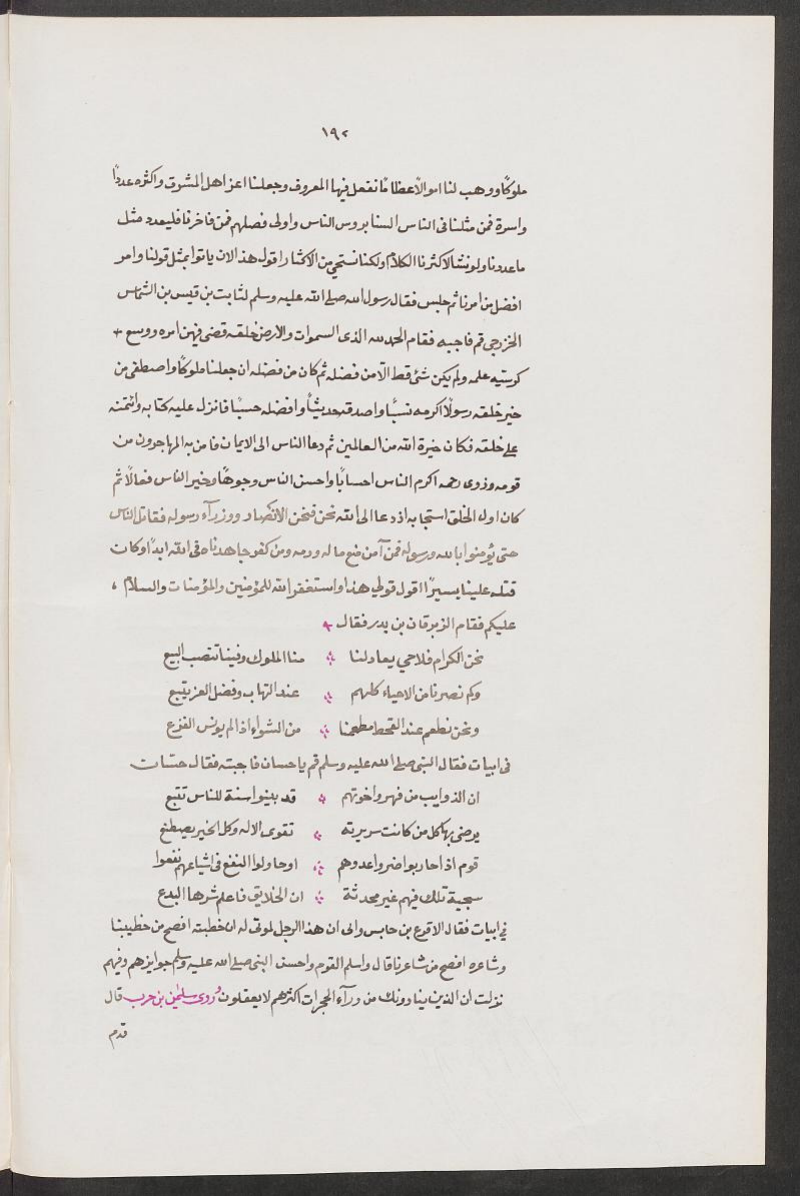 ١٩٢
ملوكًا ووهب لنا اموالًا عظامًا نفعل فيها المعروف وجعلنا اعز اهل المشرق واكثره عددًا
واسرة فمن مثلنا فى الناس السنا بروس الناس واولى فضلهم فمن فاخرنا فليعدد مثل
ما عددنا ولو نشا لاكثرنا الكلام ولكنا نستحى من الاكثار اقول هذا لان ياتوا بمثل قولنا وامر
افضل من امرنا ثم جلس فقال رسول الله صلى الله عليه وسلم لثابت بن قيس بن الشماس
الخزرجى قم فاجبه فقام الحمد لله الذى السموات والارض خلقه قضى فيهن امره ووسع
كرسيه علمه ولم يكن شئ قط الا من فضله ثم كان من فضله ان جعلنا ملوكًا واصطفى من
خير خلقه رسولًا اكرمه نسبًا واصدقه حديثًا وافضله حسبًا فانزل عليه كتابه وائتمنه
على خلقه فكان خيرة الله من العالمين ثم دعا الناس الى الايمان فامن به المهاجرون من
قومه وذوى رحمه اكرم الناس احسابًا واحسن الناس وجوهًا وخير الناس فعالًا ثم
كان اول الخلق استجابه اذ دعا الى الله نحن فنحن الانصار ووزرآء رسوله فقاتل الناس
حتى يؤمنوا بالله ورسوله فمن آمن منع ماله ودمه ومن كفر جاهدناه فى الله ابدًا وكان
قتله علينا يسيرًا اقول قولى هذا واستغفر الله للمؤمنين والمؤمنات والسلام
عليكم فقام الزبرقان بن بدر فقال
نحن الكرام فلا حي يعادلنا منا الملوك وفينا تنصب البيع
وكم نصرنا من الاحياء كلهم عند النهاب وفضل العز يتبع
ونحن نطعم عند القحط مطعمنا من الشواء اذا لم يونس القزع
فى ابيات فقال النبى صلى الله عليه وسلم قم يا حسان فاجبته فقال حسان
ان الذوايب من فهر واخوتهم قد بينوا سنة للناس تتبع
يرضى بها كل من كانت سريرته تقوى الاله وكل الخير يصطنع
قوم اذا حاربوا ضروا عدوهم او حاولوا النفع فى اشياعهم نفعوا
سجية تلك فيهم غير محدثة ان الخلايق فاعلم شرها البدع
فى ابيات فقال الاقرع بن حابس وابى ان هذا الرجل لموتى له ان خطبته افصح من خطيبنا
وشاعره افصح من شاعرنا قال واسلم القوم واحسن النبى صلى الله عليه وسلم جوايزهم وفيهم
نزلت ان الذين ينادونك من ورآء الحجرات اكثرهم لا يعقلون وروى سليمن بن حرب قال
قدم